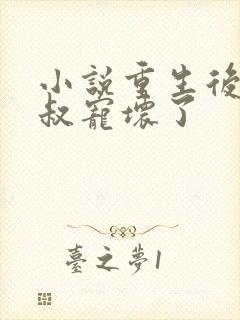 小説重生後
叔寵壞了
臺之夢1